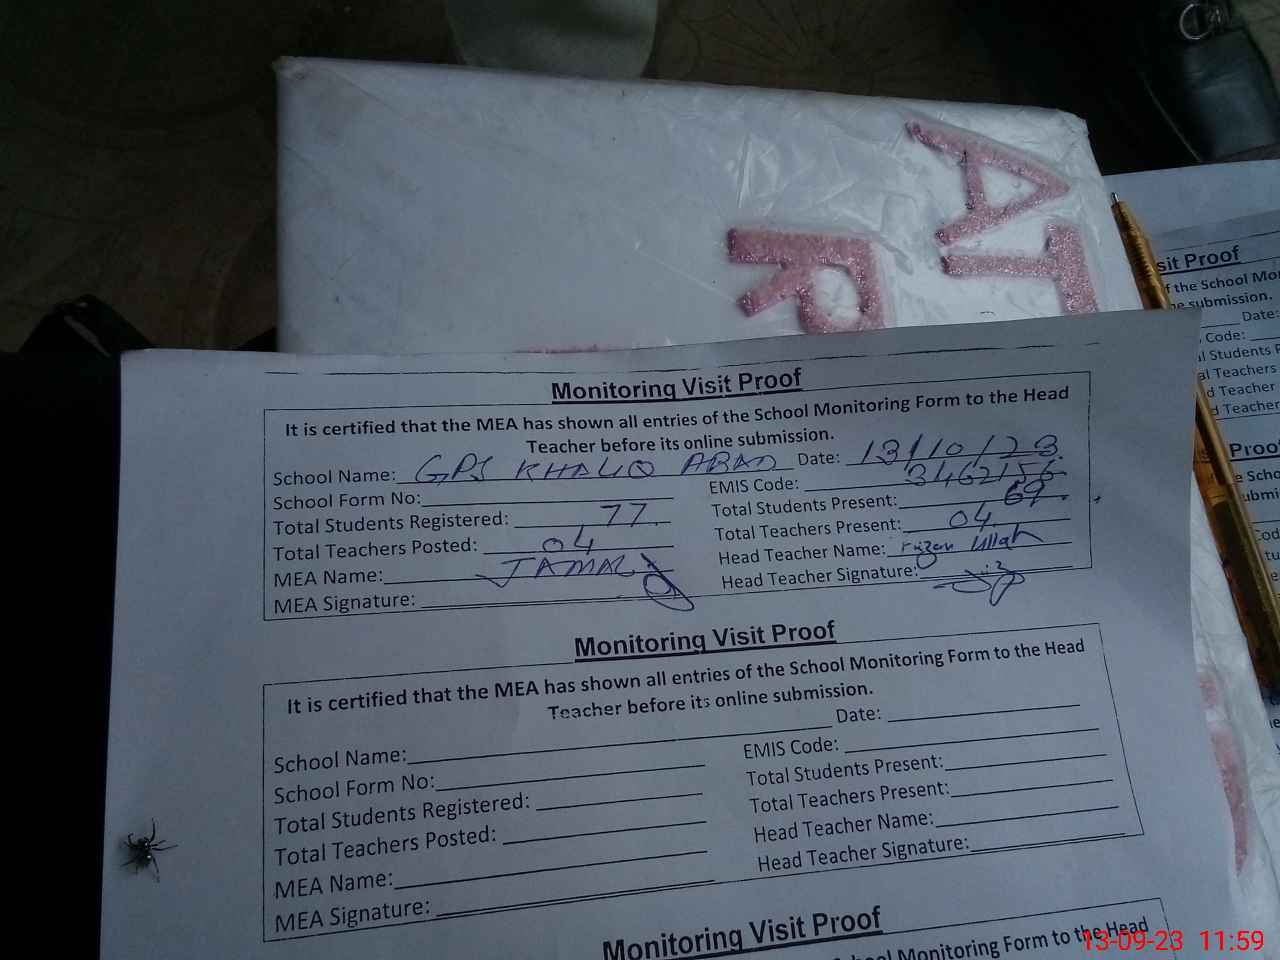 AT
R
Monitoring Visit Proof
It is certified that the MEA has shown all entries of the School Monitoring Form to the Head
Teacher before its online submission.
School Name: GPS KHALIQ ABAD Date: 13/10/23
School Form No: EMIS Code: 3462156
Total Students Registered: 77 Total Students Present: 69
Total Teachers Posted: 04 Total Teachers Present: 04
MEA Name: JAMAL Head Teacher Name: Ullah
MEA Signature: Head Teacher Signature:
Monitoring Visit Proof
It is certified that the MEA has shown all entries of the School Monitoring Form to the Head
Teacher before its online submission.
School Name: Date:
School Form No: EMIS Code:
Total Students Registered: Total Students Present:
Total Teachers Posted: Total Teachers Present:
MEA Name: Head Teacher Name:
MEA Signature: Head Teacher Signature:
Monitoring Visit Proof
School Monitoring Form to the Head
sit Proof
f the School Mon
ne submission.
Date:
Code:
al Students P
al Teachers
d Teacher
d Teacher
Proo
13-09-23 11:59